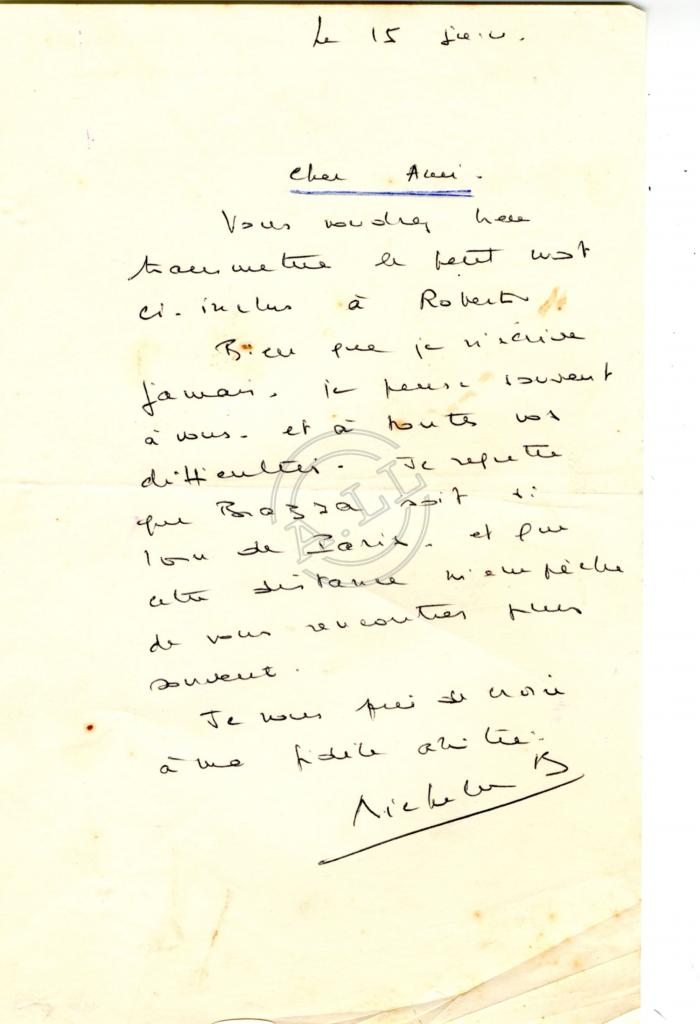 Le 15 juin.
Cher Ami.
Vous voudrez bien
transmettre le petit mot
ci-inclus à Robert
Bien que je n'écrive
jamais. je pense souvent
à vous. et à toutes vos
difficultés. Je regrette
que Brazza soit si
loin de Paris. et que
cette distance m'empêche
de vous rencontrer plus
souvent.
Je vous prie de croire
à ma fidèle amitié.
B
A.LL